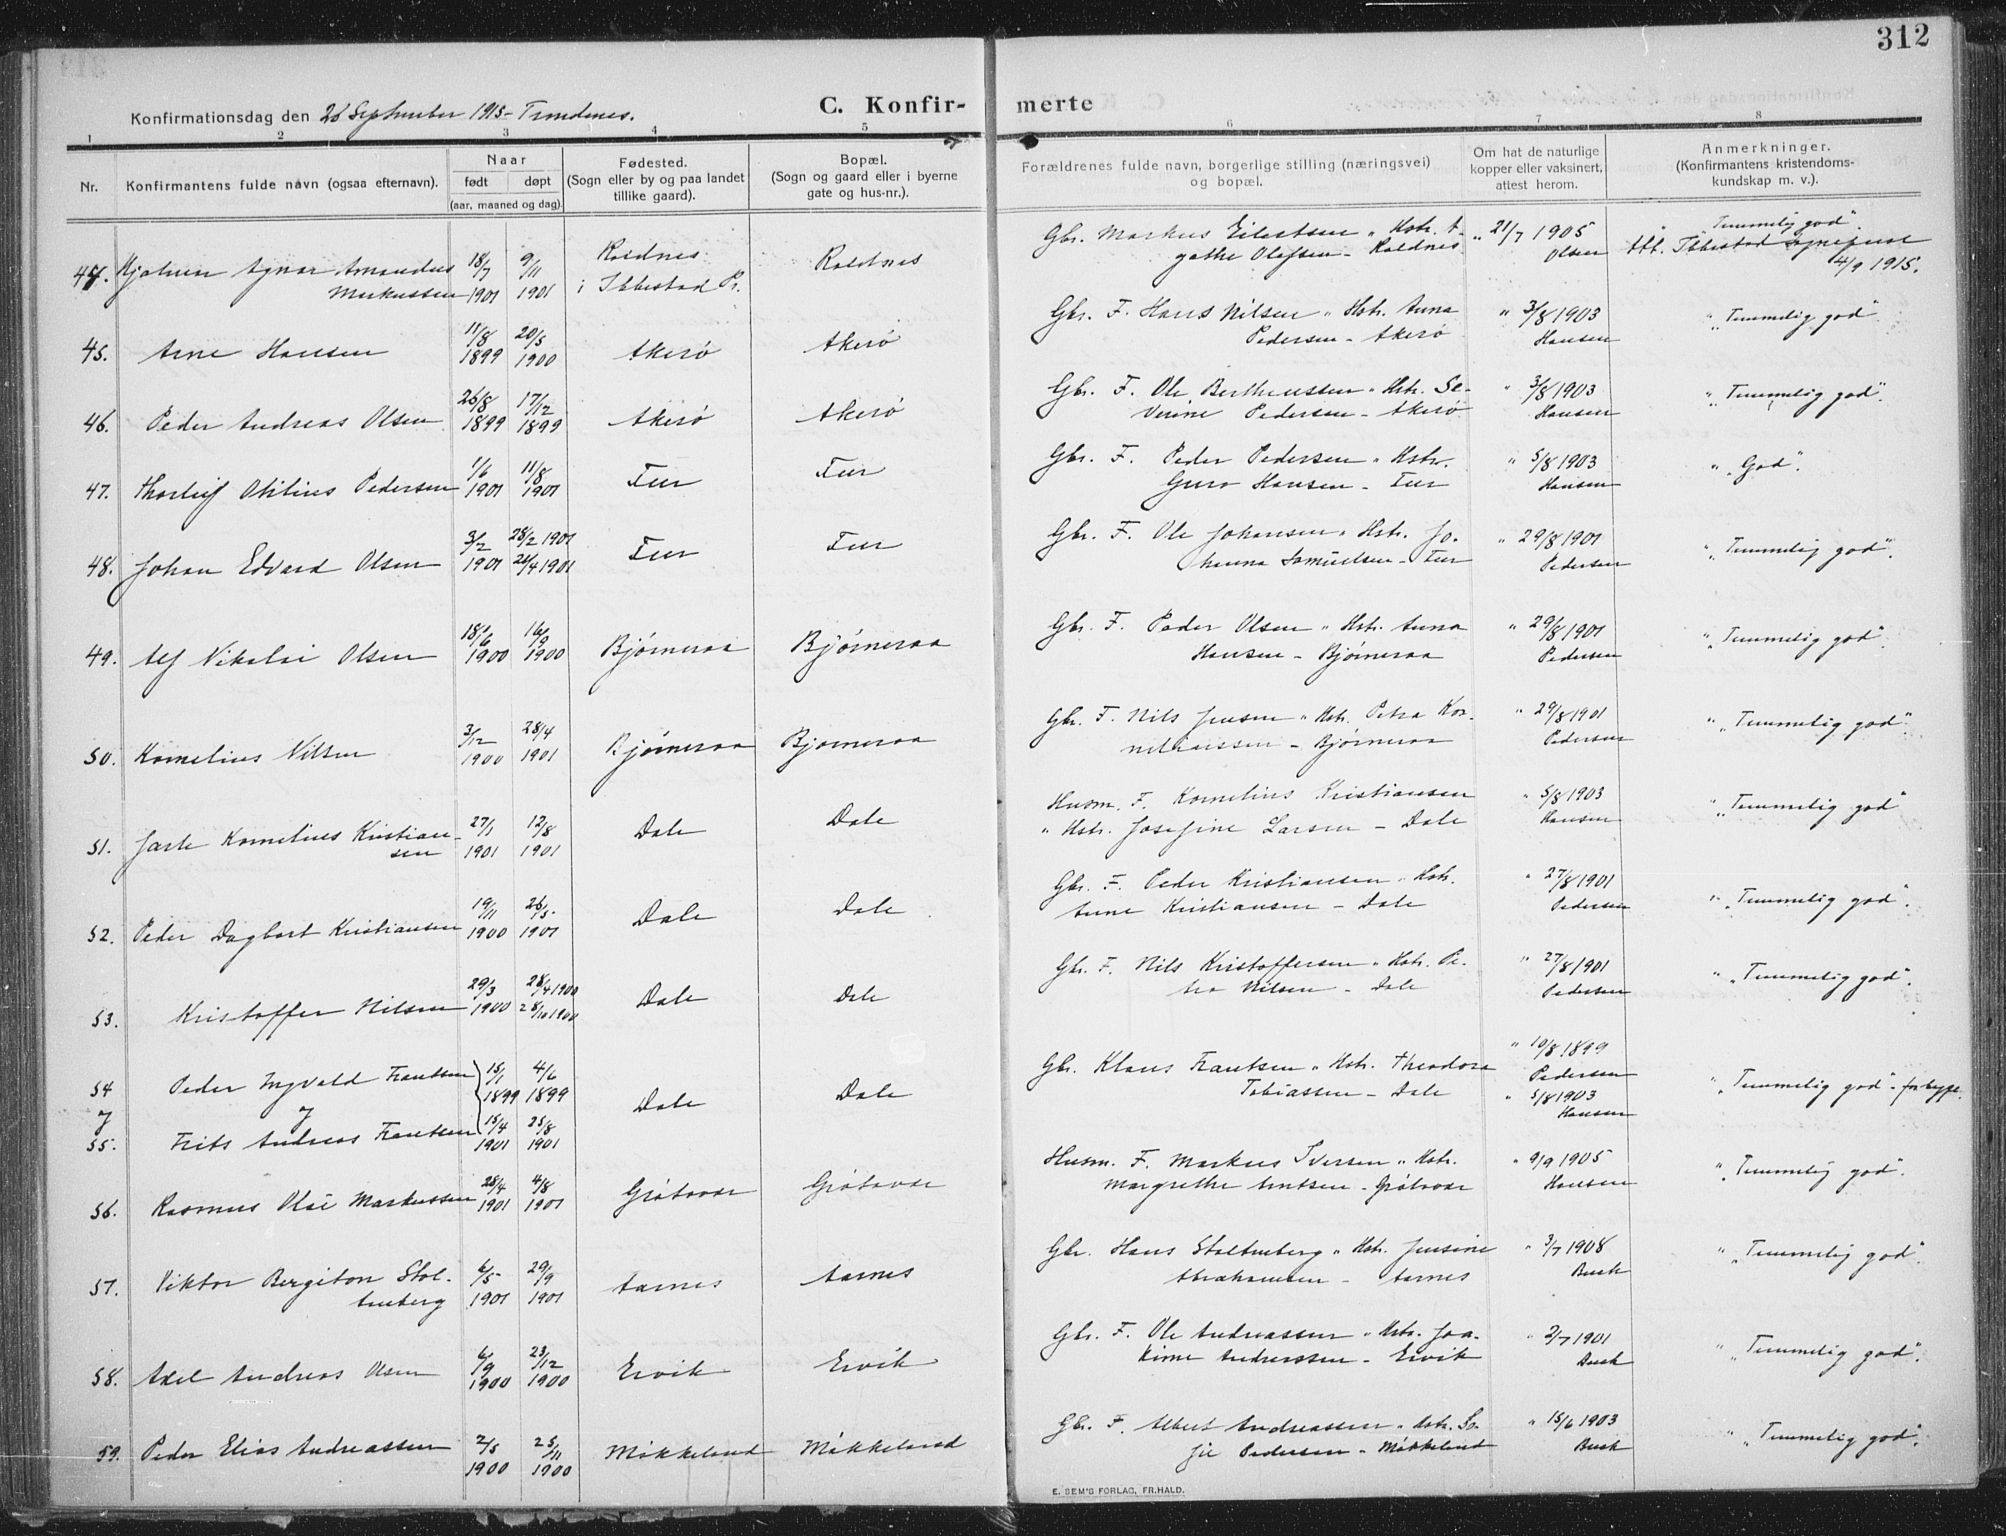 312
Konfirmationsdag den 26 September 1915 - Trondenes.
C. Konfir- merte
1 2 3 4 5 6 7 8
Nr.
Konfirmantens fulde navn (ogsaa efternavn).
Naar
født døpt
(aar, maaned og dag).
Fødested.
(Sogn eller by og paa landet
tillike gaard).
Bopæl.
(Sogn og gaard eller i byerne
gate og hus-nr.).
Forældrenes fulde navn, borgerlige stilling (næringsvei)
og bopæl.
Om hat de naturlige
kopper eller vaksinert,
attest herom.
Anmerkninger.
(Konfirmantens kristendoms-
kundskap m. v.).
44. Hjalmar Agnar Amandus 18/7 9/11 Roldnes Roldnes Gbr. Markus Eilertsen " Hstr. A- " 21/7 1905 " "Temmelig god".
Markussen 1901 1901 i Ibbestad Pr. gathe Olafsen - Roldnes Olsen Att. Ibbestad
4/9 1915.
45. Arne Hansen 11/8 20/5 Akerø Akerø Gbr. F. Hans Nilsen " Hstr. Anna " 3/8 1903 " "Temmelig god".
1899 1900 Pedersen - Akerø Hansen
46. Peder Andreas Olsen 26/8 17/12 Akerø Akerø Gbr. F. Ole Bertheussen " Hstr. Se- " 3/8 1903 " "Temmelig god".
1899 1899 verine Pedersen - Akerø Hansen
47. Thorleif Otilius Pedersen 1/6 11/8 Fur Fur Gbr. F. Peder Pedersen " Hstr. " 5/8 1903 " "God".
1901 1901 Guro Hansen - Fur Hansen
48. Johan Edvard Olsen 3/2 28/2 1901 Fur Fur Gbr. F. Ole Johansen " Hstr. Jo- " 29/8 1901 " "Temmelig god".
1901 26/4 1901 hanna Samuelsen - Fur Pedersen
49. Alf Nikolai Olsen 18/6 16/9 Bjørneraa Bjørneraa Gbr. F. Peder Olsen " Hstr. Anna " 29/8 1901 " "Temmelig god".
1900 1900 Hansen - Bjørneraa Pedersen
50. Kornelius Nilsen 3/12 28/4 Bjørneraa Bjørneraa Gbr. F. Nils Jensen " Hstr. Petra Kor- " 29/8 1901 " "Temmelig god".
1900 1901 neliussen - Bjørneraa Pedersen
51. Jarle Kornelius Kristian- 27/1 12/8 Dale Dale Husm. F. Kornelius Kristiansen " 5/8 1903 " "Temmelig god"
sen 1901 1901 " Hstr. Josefine Larsen - Dale Hansen
52. Peder Dagbart Kristiansen 19/11 26/5 Dale Dale Gbr. F. Peder Kristiansen " Hstr. " 27/8 1901 " "Temmelig god".
1900 1901 Anne Kristiansen - Dale Pedersen
53. Kristoffer Nilsen 29/3 28/4 1900 Dale Dale Gbr. F. Nils Kristoffersen " Hstr. Pe- " 27/8 1901 " "Temmelig god".
1900 28/10 1900 tra Nilsen - Dale Pedersen
54 Peder Ingvald Frantsen 15/1 4/6 Dale Dale Gbr. Klaus Frantsen " Hstr. Theodora " 10/8 1899 " "Temmelig god" - for begge.
1899 1899 Tobiassen - Dale Pedersen
55. Frits Andreas Frantsen 15/4 25/8 " 5/8 1903
1901 1901 Hansen
56. Rasmus Olai Markussen 28/4 4/8 Grøtavær Grøtavær Husm. F. Markus Iversen " Hstr. " 9/9 1905 " "Temmelig god".
1901 1901 Margrethe Arntsen - Grøtavær Hansen
57. Viktor Bergiton Stol- 6/5 29/9 Aarnes Aarnes Gbr. Hans Stoltenberg " Hstr. Jensine " 3/7 1908 " "Temmelig god".
tenberg 1901 1901 Abrahamsen - Aarnes Busk
58. Axel Andreas Olsen 6/9 23/12 Ervik Ervik Gbr. F. Ole Andreassen " Hstr. Joa- " 2/7 1901 " "Temmelig god".
1900 1900 kime Andreassen - Ervik Busk
59. Peder Elias Andreassen 2/5 25/11 Møkkeland Møkkeland Gbr. F. Albert Andreassen " Hstr. So- " 15/6 1903 " "Temmelig god".
1900 1900 fie Pedersen - Møkkeland Busk
E. SEM'S FORLAG, FR.HALD.